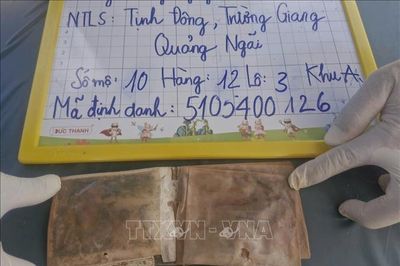 NTLS: Tịnh Đông, Trường Giang
Quảng Ngãi
Số mộ: 10 Hàng: 12 Lô: 3 Khu A
Mã định danh: 5105400126
ĐỨC THÀNH
TTXVN - VNA